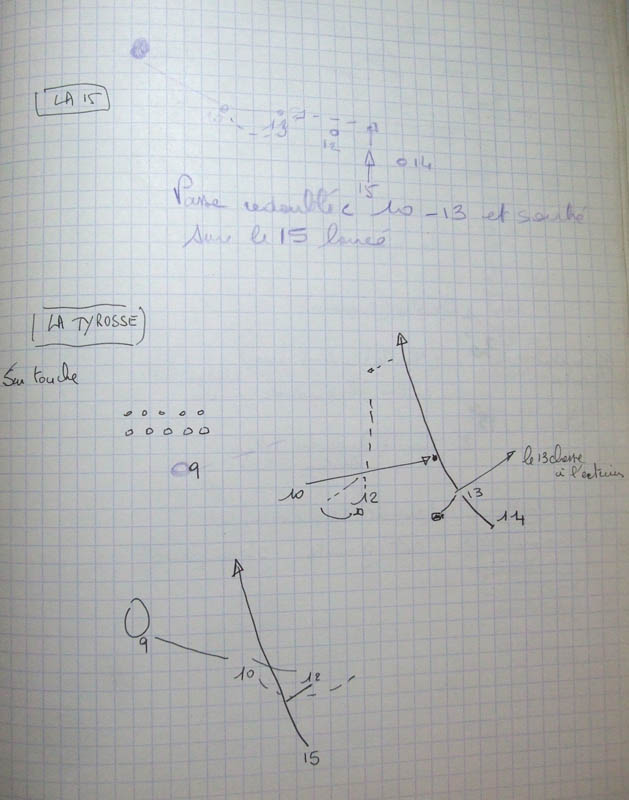 LA 15
13
12
0 14
15
Passe redoublée 10 - 13 et sauté
sur le 15 lancé
LA TYROSSE
Sur touche
9
10
12
13
14
le 13 chasse
à l'extérieur
9
10
12
15